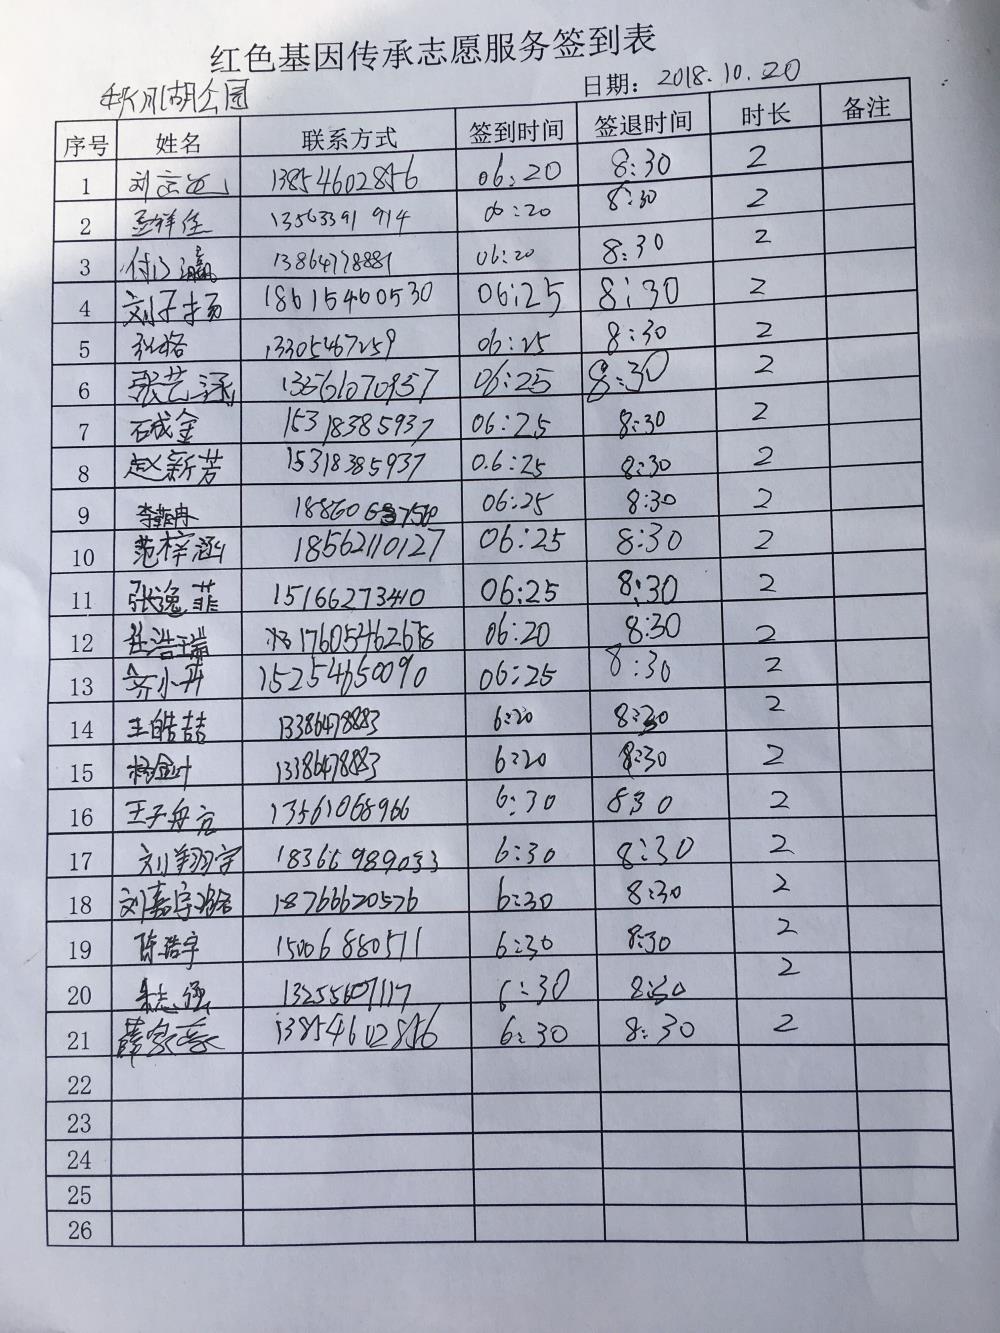 红色基因传承志愿服务签到表
秋月湖公园 日期：2018.10.20
序号 姓名 联系方式 签到时间 签退时间 时长 备注
1 刘 13854602856 06:20 8:30 2
2 孟祥佳 13563391914 06:20 8:30 2
3 付 瀛 13864778881 06:20 8:30 2
4 刘子扬 18615460530 06:25 8:30 2
5 13305467259 06:25 8:30 2
6 张艺涵 06:25 8:30 2
7 石成金 15318385937 06:25 8:30 2
8 赵新芳 15318385937 06:25 8:30 2
9 李 冉 06:25 8:30 2
10 范梓涵 18562110127 06:25 8:30 2
11 张逸菲 15166273410 06:25 8:30 2
12 杜浩瑞 17605462678 06:20 8:30 2
13 齐小丹 15254650090 06:25 8:30 2
14 王皓喆 13386478883 6:20 8:30 2
15 杨金叶 13386478883 6:20 8:30 2
16 王子舟 13561068966 6:30 830 2
17 刘翔宇 18366989033 6:30 8:30 2
18 刘嘉宇 18766620576 6:30 8:30 2
19 陈浩宇 15006880511 6:30 8:30 2
20 朱志强 13255607117 6:30 8:30 2
21 薛家豪 13854602856 6:30 8:30 2
22
23
24
25
26